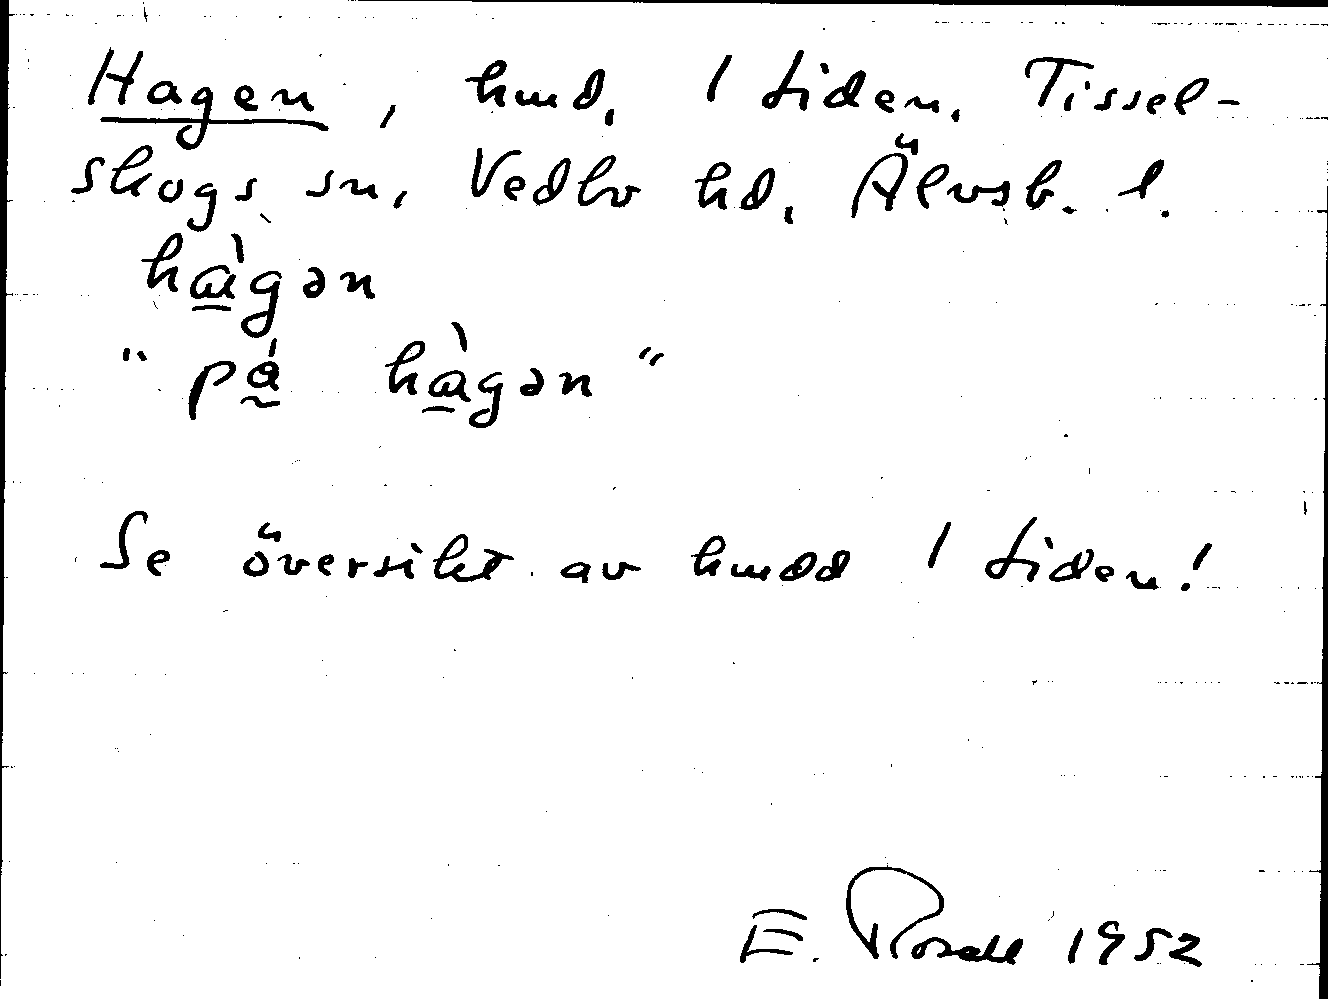 Hagen, hmd, 1 Liden, Tissel-
skogs sn, Vedbo hd, Älvsb. l.
hàgən
"på hàgən"
Se översikt av hmdd 1 Liden!
E. Rosell 1952